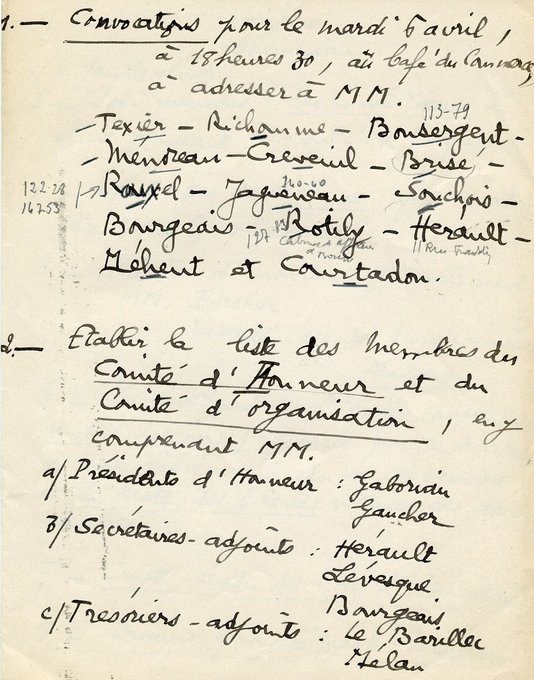 1.— Convocations pour le mardi 6 avril,
à 18 heures 30, au Café du Commerce,
à adresser à MM.
113-79
Texier — Richomme — Bonsergent —
Ménoreau — Creveuil — Brisé —
122-28
167-53
140-40
Rouxel — Jagueneau — Souchois —
Bourgeois — Rotily — Hérault —
127
11 Rue
Zéhent et Courtadon.
2.— Etablir la liste des membres du
Comité d'Honneur et du
Comité d'organisation, en y
comprenant MM.
a/ Présidents d'Honneur : Gaboriau
Gaucher
b/ Secrétaires-adjoints : Hérault
Lévesque
Bourgeois
c/ Trésoriers-adjoints : Le Barillec
Mélau